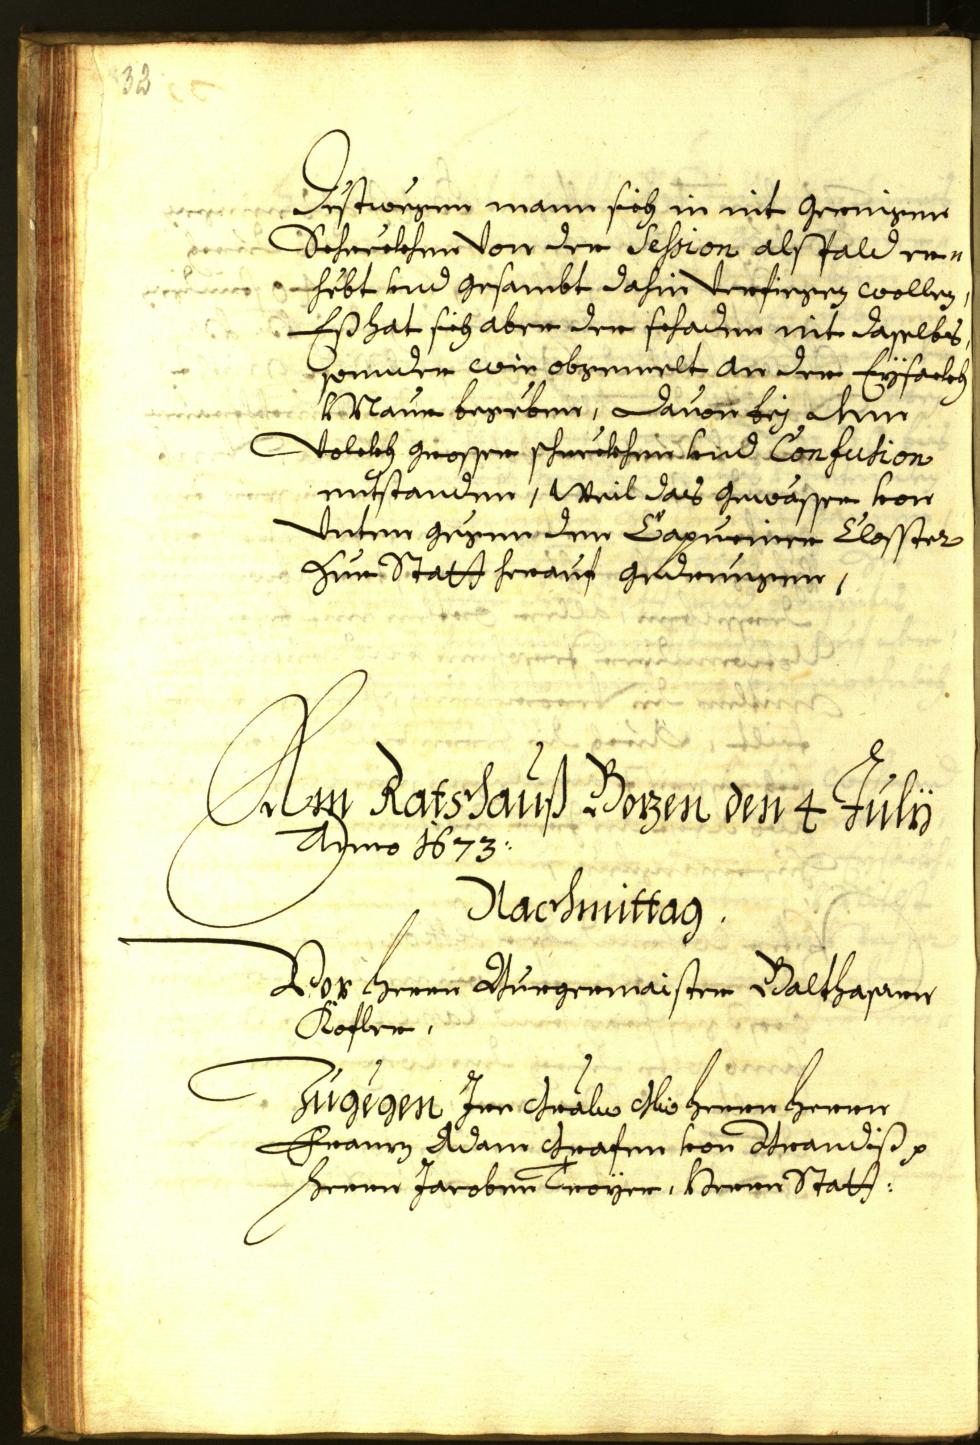 32
Destwegen mann sich in nit geringem
Schreckhen von der Session alsPald er„
hebt und gesambt dahin verfiegen wollen,
Eß hat sich aber der schaden nit daselbs,
sonnder wie obgemelt an der Eysackh
Maur begeben, davon bej dem
Volckh grosser schreckhen und Confusion
entstanden, Weil das gewässer von
Unten gegen dem Capuciner Closster
Zur Statt herauf gedrungen,
Am Ratshauß Bozen den 4 Julÿ
Anno 1673:
Nachmittag.
Vor herrn Burgermaister Balthasarn
Kofler,
Zugegen Ir herrn herrn
Frannz Adam Grafen von Brandiß
herrn Jacoben Troyer, Herrn Statt: